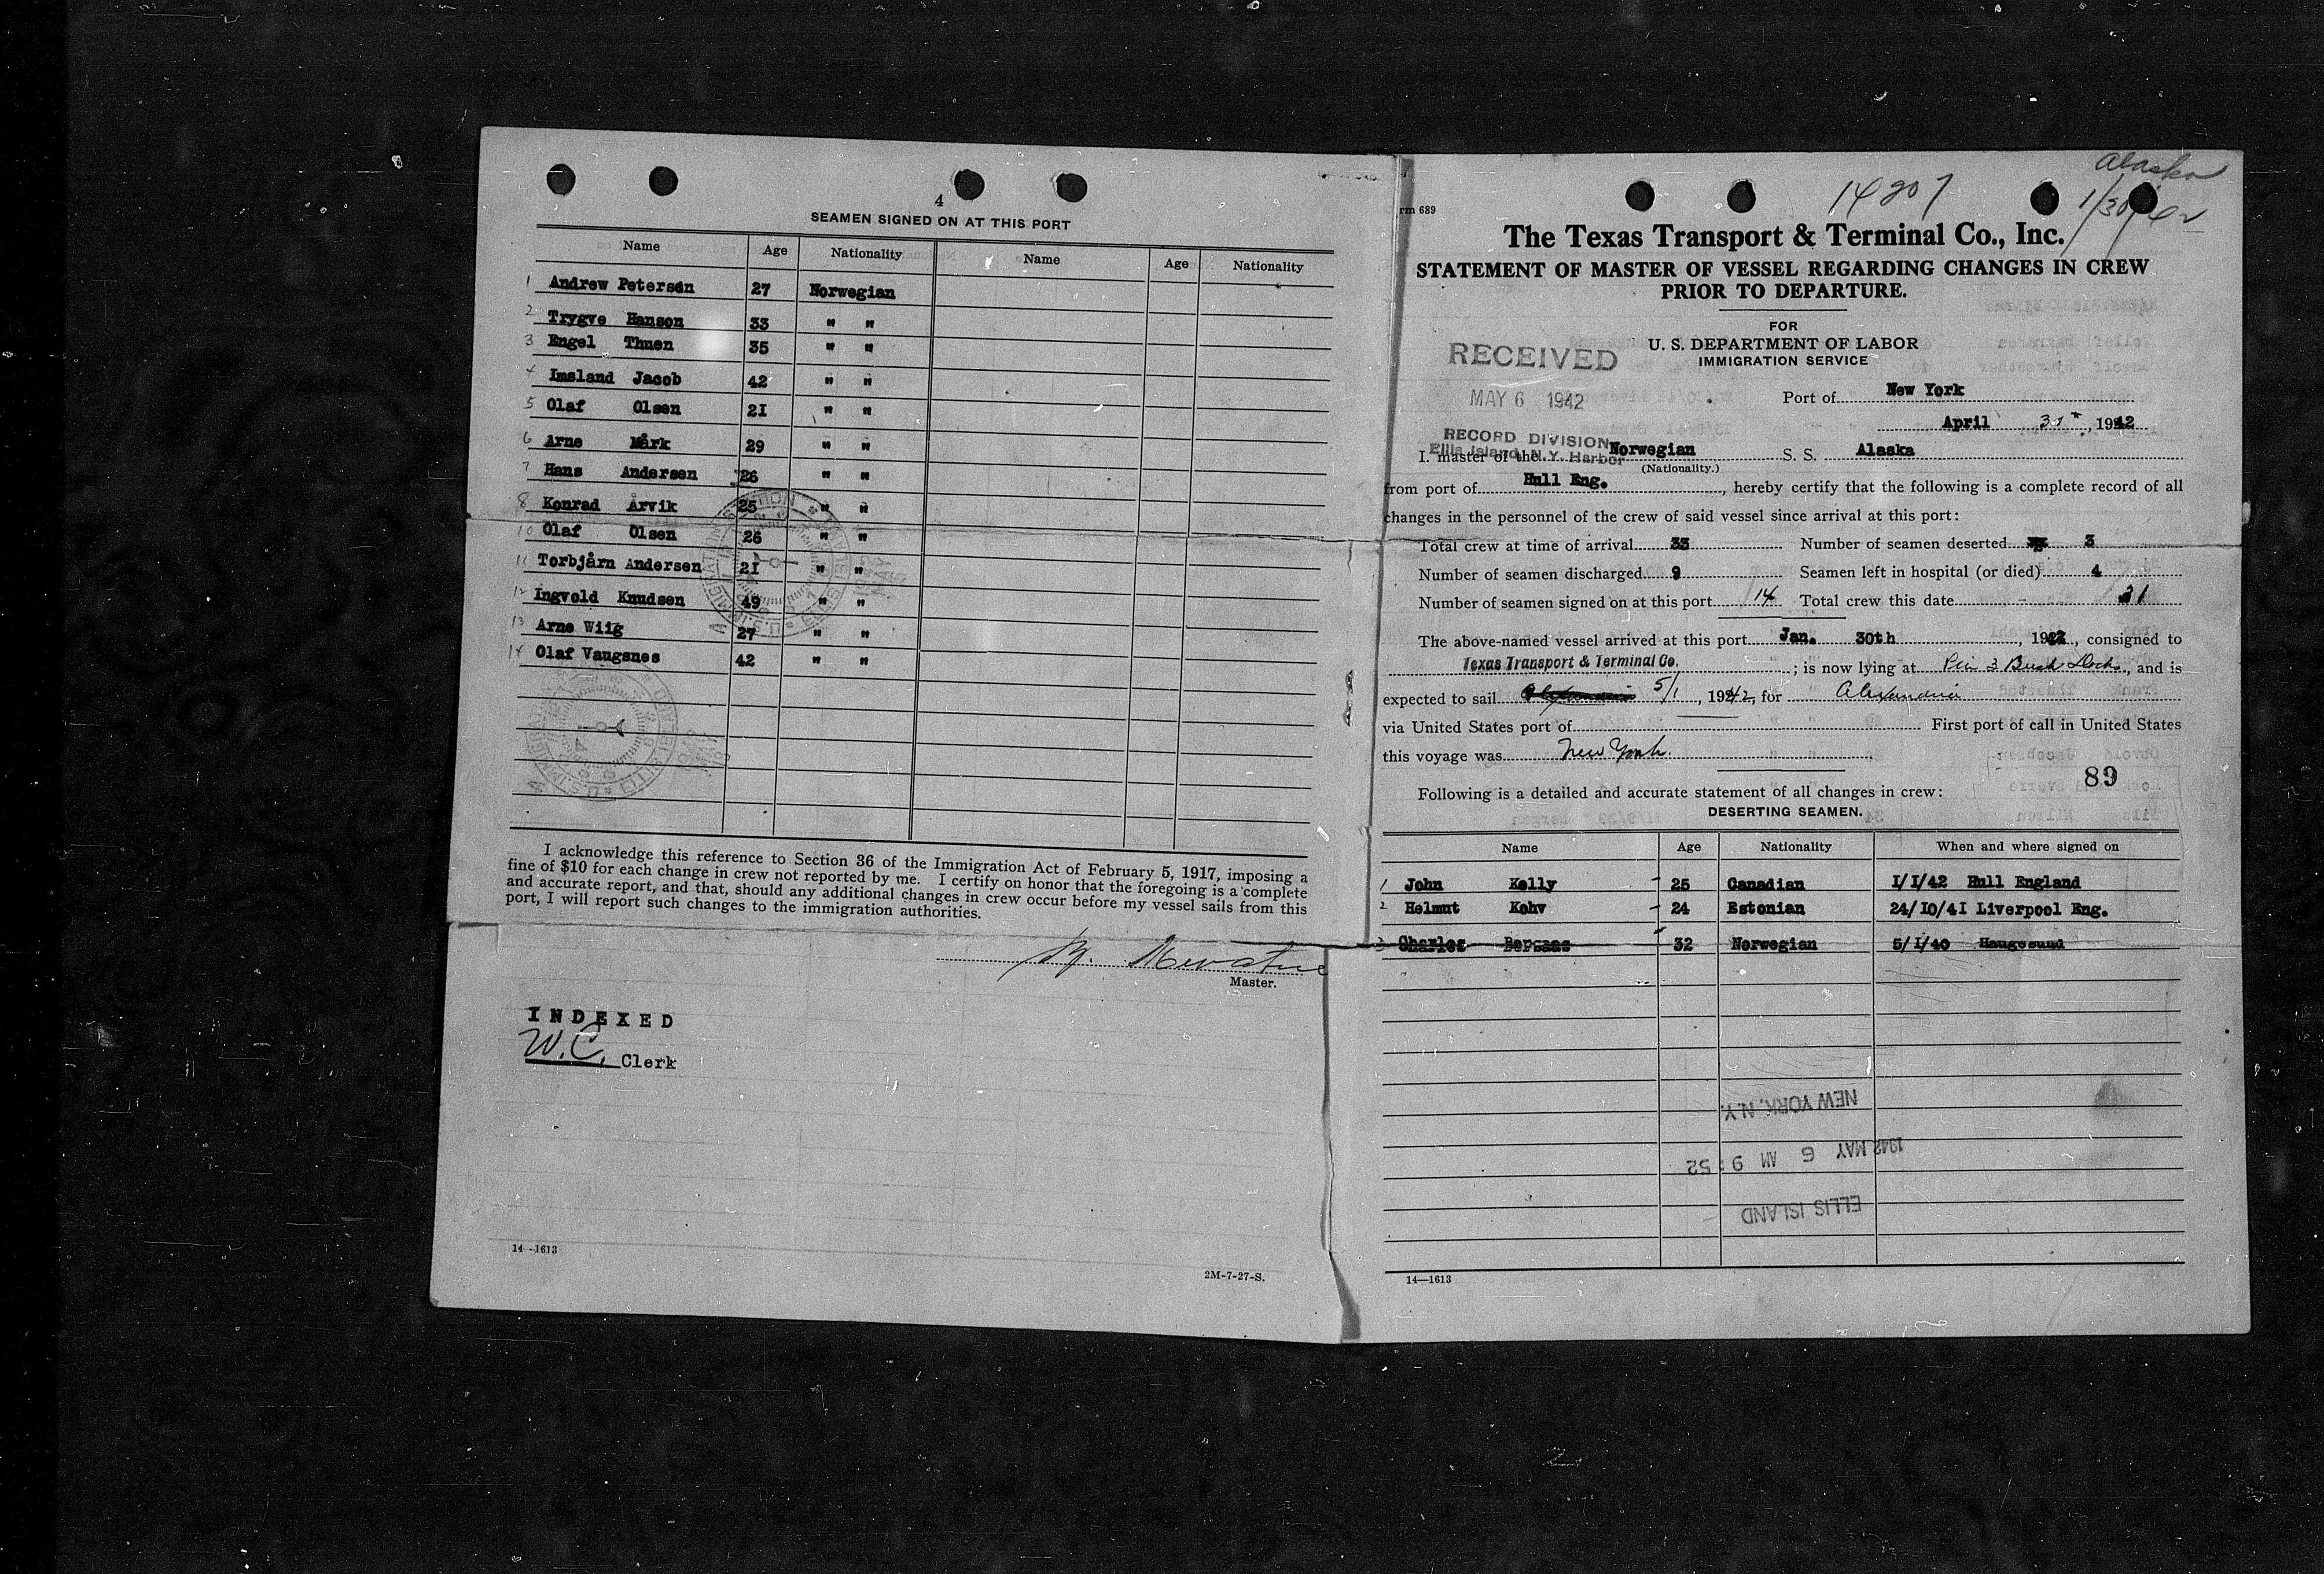 4
SEAMEN SIGNED ON AT THIS PORT
Name Age Nationality Name Age Nationality
1 Andrew Petersen 27 Norwegian
2 Trygve Hanson 33 " "
3 Engel Thuen 35 " "
4 Imsland Jacob 42 " "
5 Olaf Olsen 21 " "
6 Arne Mårk 29 " "
7 Hans Andersen 26 " "
8 Konrad Årvik 25 " "
10 Olaf Olsen 26 " "
11 Torbjårn Andersen 21 " "
12 Ingvold Knudsen 49 " "
13 Arne Wiig 27 " "
14 Olaf Vangsnes 42 " "
I acknowledge this reference to Section 36 of the Immigration Act of February 5, 1917, imposing a
fine of $10 for each change in crew not reported by me. I certify on honor that the foregoing is a complete
and accurate report, and that, should any additional changes in crew occur before my vessel sails from this
port, I will report such changes to the immigration authorities.
Master.
INDEXED
W.C. Clerk
14-1613
2M-7-27-S.
Alaska
14207
1/30/42
rm 689
The Texas Transport & Terminal Co., Inc.
STATEMENT OF MASTER OF VESSEL REGARDING CHANGES IN CREW
PRIOR TO DEPARTURE.
FOR
U. S. DEPARTMENT OF LABOR
IMMIGRATION SERVICE
RECEIVED
MAY 6 1942
RECORD DIVISION
Ellis Island, N.Y. Harbor
Port of New York
April , 1942
I, master of the Norwegian S. S. Alaska
(Nationality.)
from port of Hull Eng. , hereby certify that the following is a complete record of all
changes in the personnel of the crew of said vessel since arrival at this port:
Total crew at time of arrival 33 Number of seamen deserted 3
Number of seamen discharged 9 Seamen left in hospital (or died) 4
Number of seamen signed on at this port 14 Total crew this date 31
The above-named vessel arrived at this port Jan. 30th , 1942, consigned to
Texas Transport & Terminal Co. ; is now lying at Pier 3 Bush Docks, and is
expected to sail 5/1 , 1942, for Alexandria
via United States port of First port of call in United States
this voyage was New York.
89
Following is a detailed and accurate statement of all changes in crew:
DESERTING SEAMEN.
Name Age Nationality When and where signed on
1 John Kelly 25 Canadian 1/1/42 Hull England
2 Helmut Kohv 24 Estonian 24/10/41 Liverpool Eng.
3 Charles 32 Norwegian 5/1/40 Haugesund
NEW YORK, N.Y.
1942 MAY 6 AM 9:52
ELLIS ISLAND
14—1613